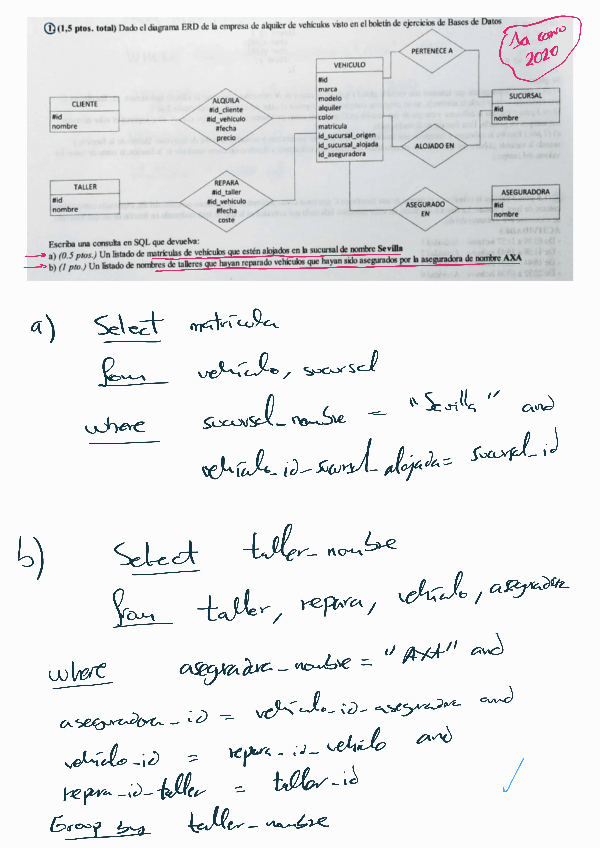 ① (1,5 ptos. total) Dado el diagrama ERD de la empresa de alquiler de vehículos visto en el boletín de ejercicios de Bases de Datos
1a convo
2020
PERTENECE A
VEHICULO
#id
marca
modelo
alquiler
color
matricula
id_sucursal_origen
id_sucursal_alojada
id_aseguradora
CLIENTE
#id
nombre
ALQUILA
#id_cliente
#id_vehiculo
#fecha
precio
SUCURSAL
#id
nombre
ALOJADO EN
TALLER
#id
nombre
REPARA
#id_taller
#id_vehiculo
#fecha
coste
ASEGURADO
EN
ASEGURADORA
#id
nombre
Escriba una consulta en SQL que devuelva:
a) (0.5 ptos.) Un listado de matrículas de vehículos que estén alojados en la sucursal de nombre Sevilla
b) (1 pto.) Un listado de nombres de talleres que hayan reparado vehículos que hayan sido asegurados por la aseguradora de nombre AXA
a) Select matrícula
from vehículo, sucursal
where sucursal_nombre = "Sevilla" and
vehículo_id_sucursal_alojada = sucursal_id
b) Select taller_nombre
from taller, repara, vehículo, aseguradora
where aseguradora_nombre = "AXA" and
aseguradora_id = vehículo_id_aseguradora and
vehículo_id = repara_id_vehículo and
repara_id_taller = taller_id
Group by taller_nombre